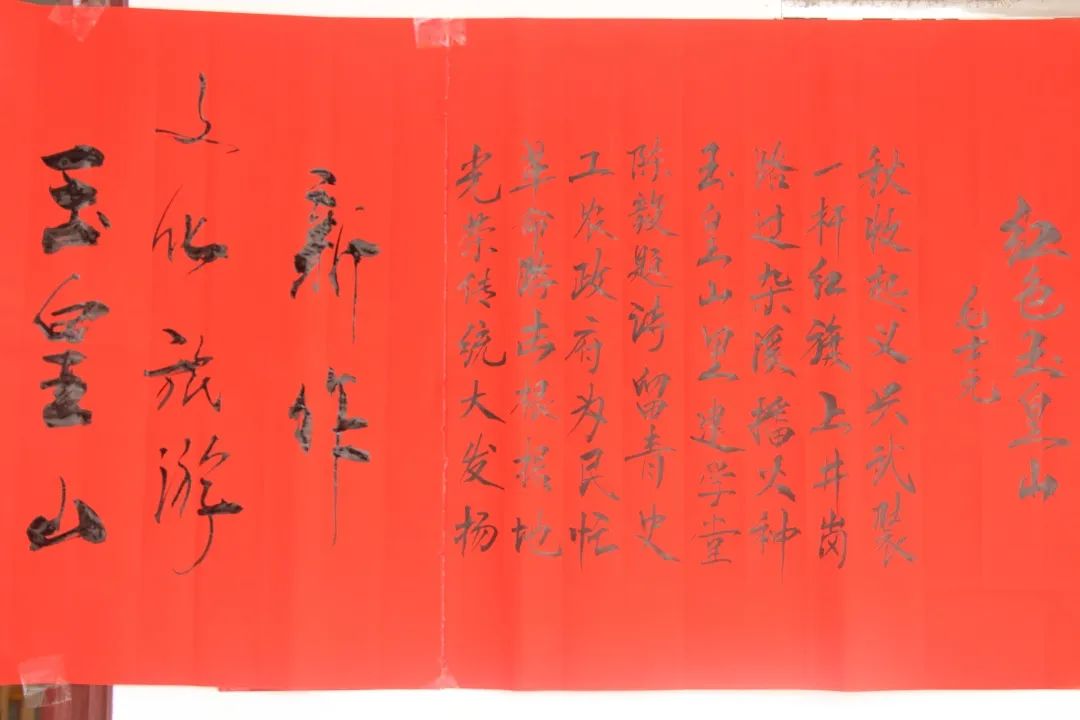 红色玉皇山
毛士元
秋收起义兴武装
一杆红旗上井岗
路过溪播火种
玉皇山里建学堂
陈毅题诗留青史
工农政府为民忙
革命游击根据地
光荣传统大发扬
新作
文化旅游
玉皇山